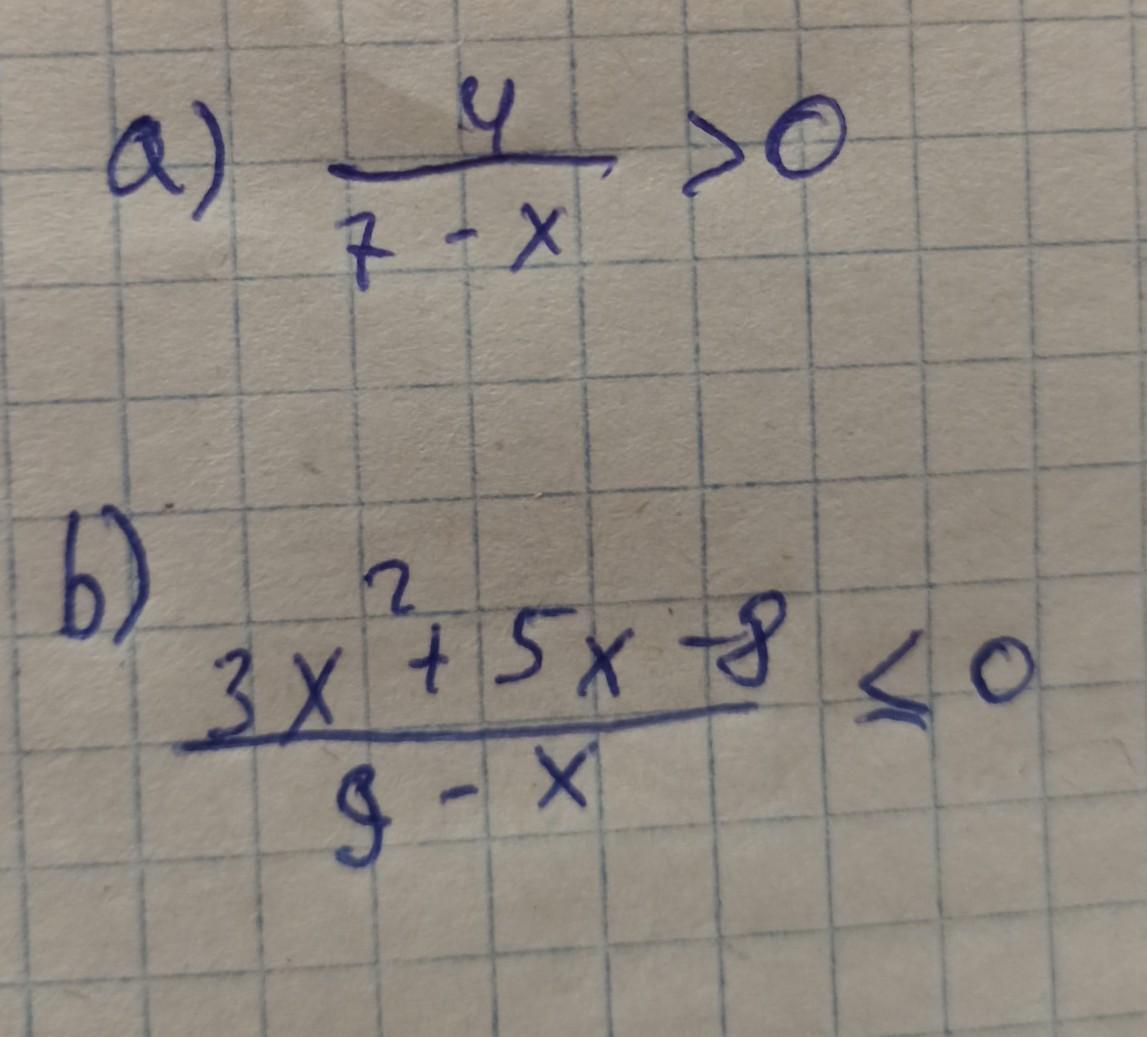 a) 4 / (7 - x) > 0
b) (3x² + 5x - 8) / (9 - x) ≤ 0